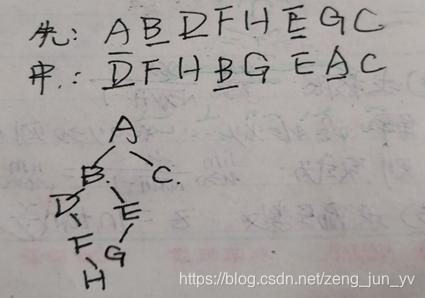 先: A B D F H E G C
中: D F H B G E A C
A
B C
D E
F G
H
https://blog.csdn.net/zeng_jun_yv